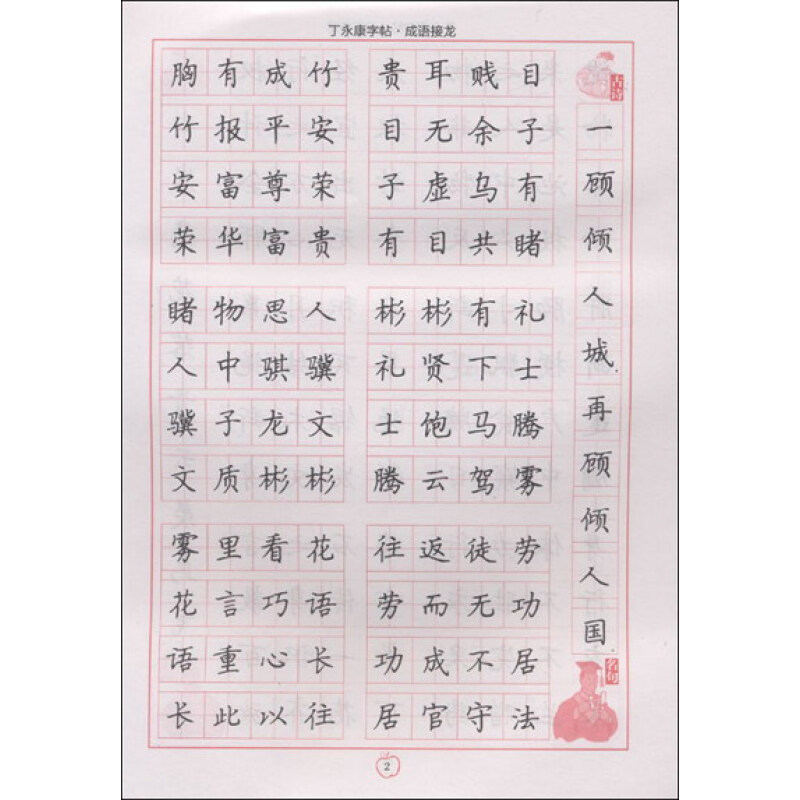 丁永康字帖·成语接龙
胸有成竹
竹报平安
安富尊荣
荣华富贵
贵耳贱目
目无余子
子虚乌有
有目共睹
睹物思人
人中骐骥
骥子龙文
文质彬彬
彬彬有礼
礼贤下士
士饱马腾
腾云驾雾
雾里看花
花言巧语
语重心长
长此以往
往返徒劳
劳而无功
功成不居
居官守法
古诗
一顾倾人城.再顾倾人国.
名句
2